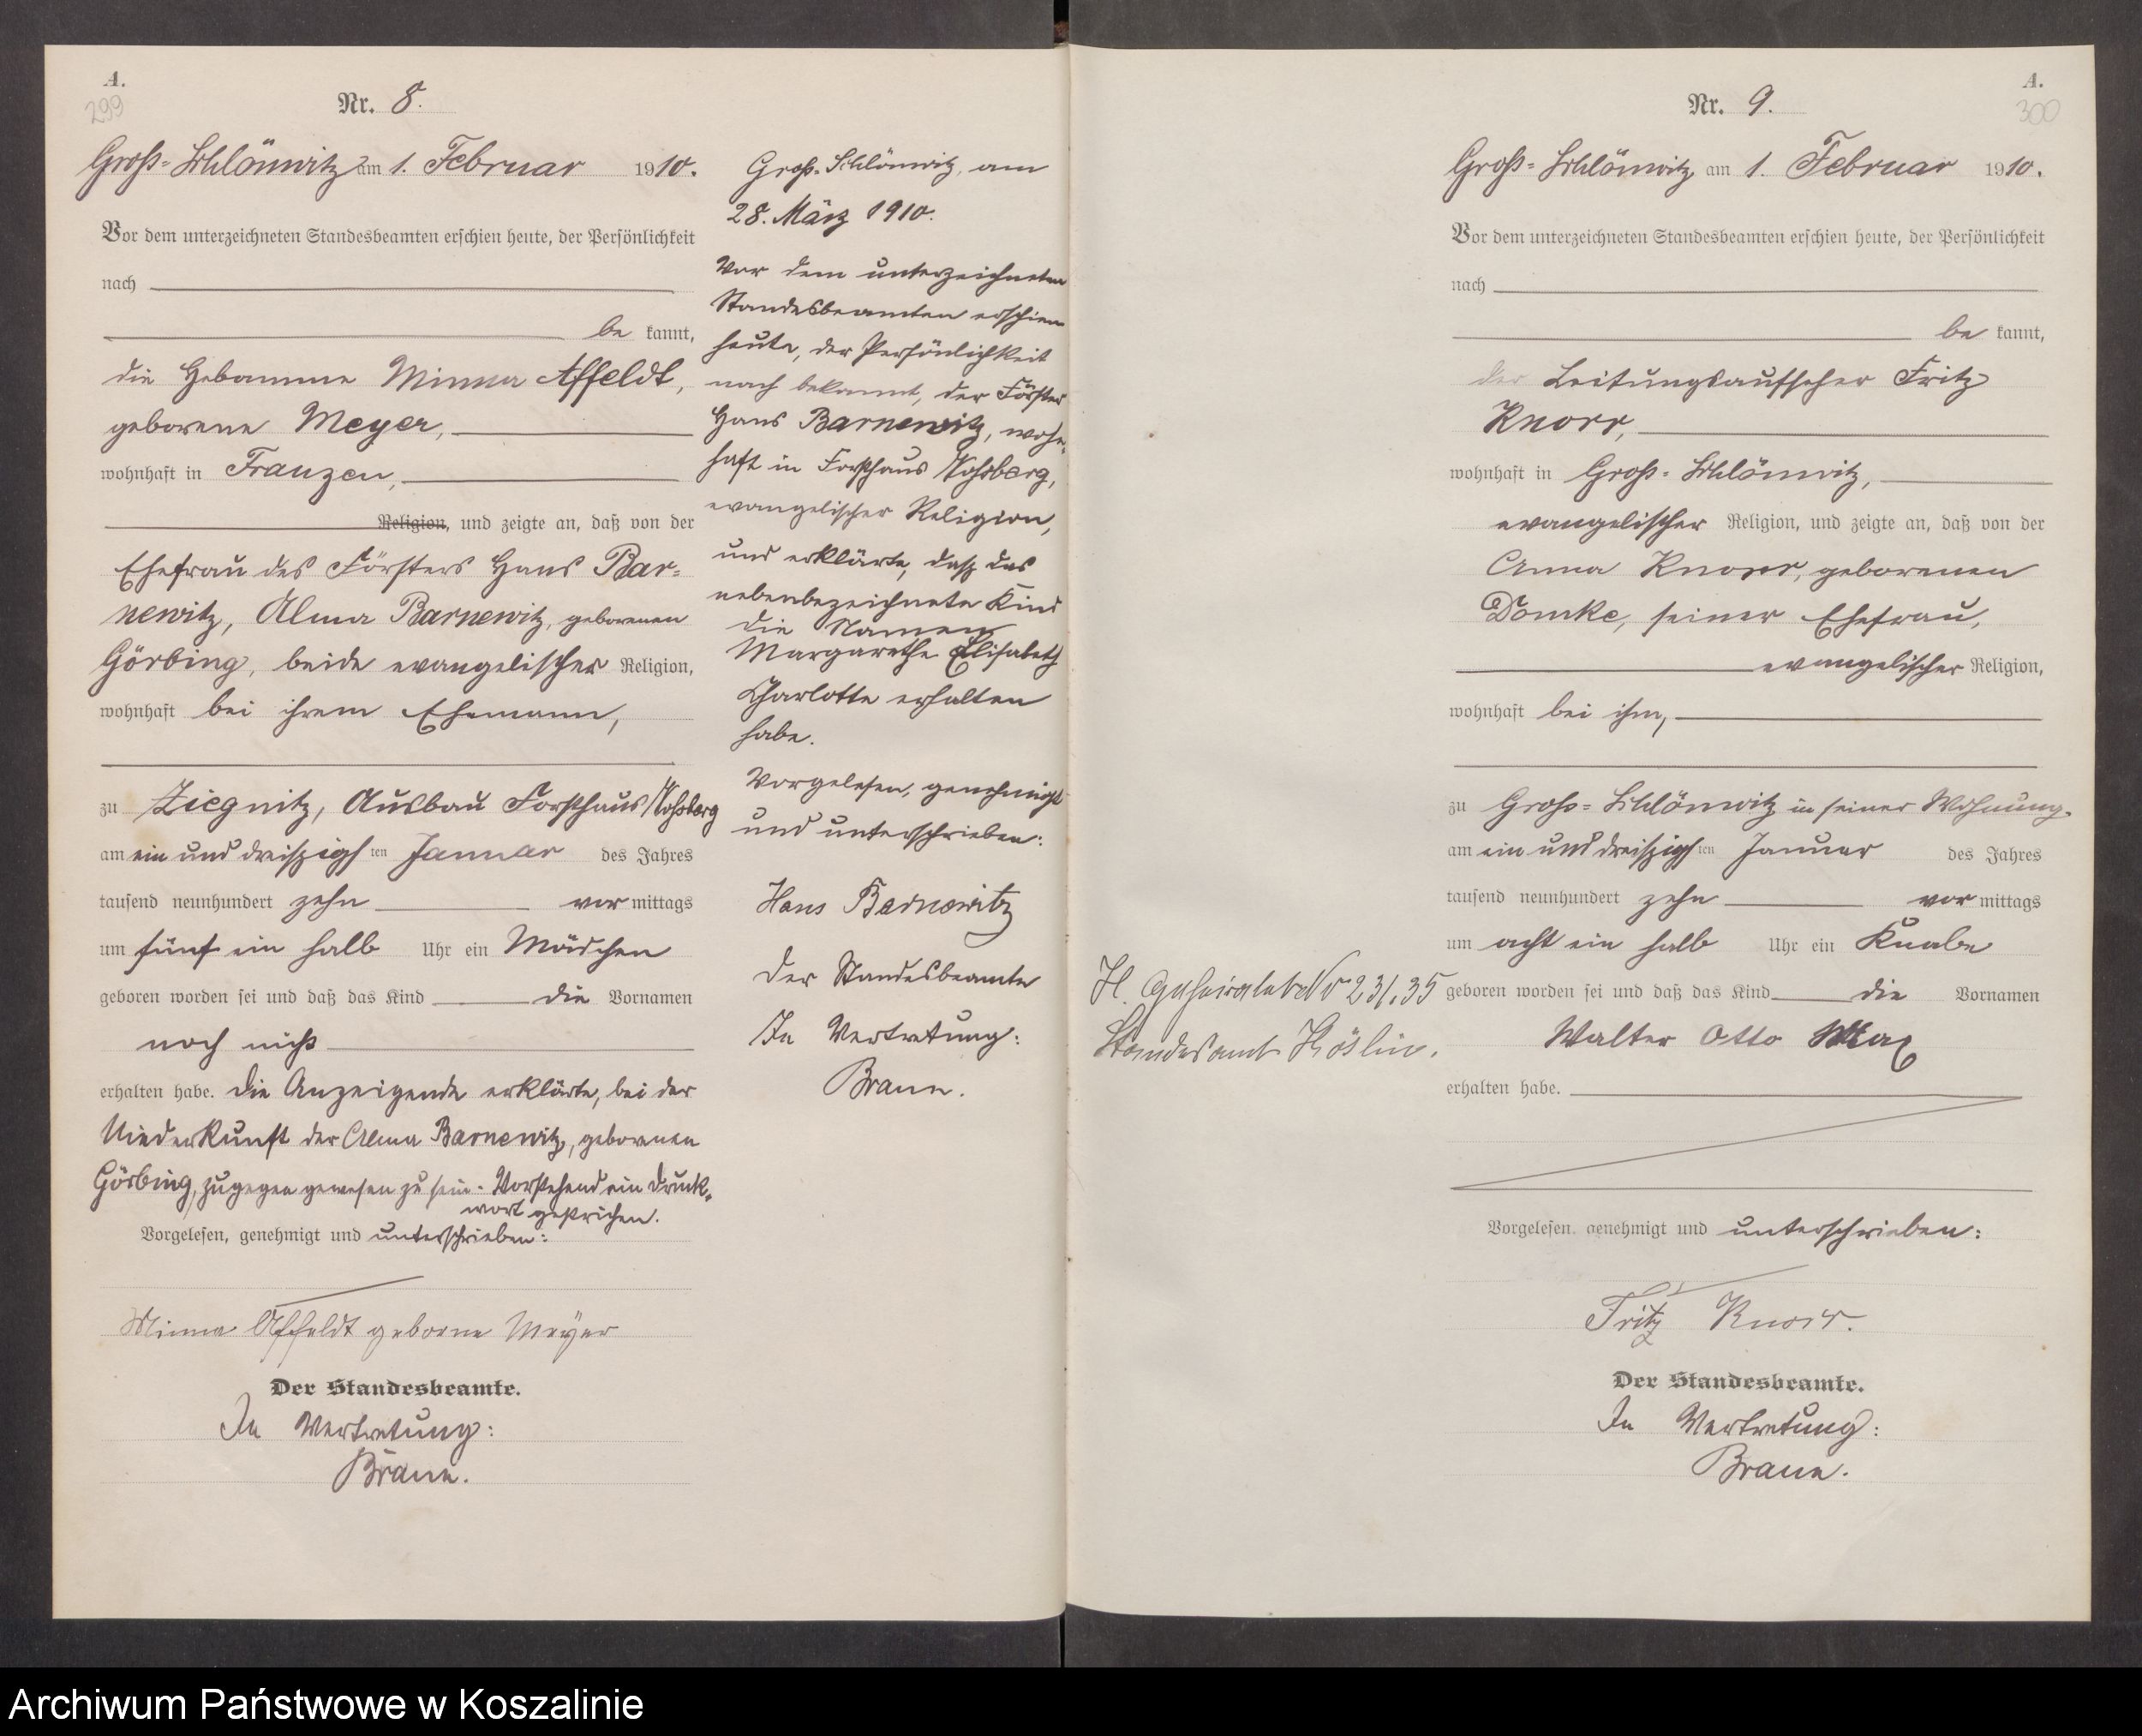 A.
299
Nr. 8.
Groß-Schlönwitz am 1. Februar 1910.
Vor dem unterzeichneten Standesbeamten erschien heute, der Persönlichkeit
nach
be kannt,
die Hebamme Minna Affeldt,
geborene Meyer,
wohnhaft in Franzen,
Religion, und zeigte an, daß von der
Ehefrau des Försters Hans Bar-
newitz, Alma Barnewitz, geborenen
Görbing, beide evangelischer Religion,
wohnhaft bei ihrem Ehemann,
zu Ziegnitz, Ausbau Forsthaus
am ein und dreißigsten Januar des Jahres
tausend neunhundert zehn vor mittags
um fünf ein halb Uhr ein Mädchen
geboren worden sei und daß das Kind die Vornamen
noch nicht
erhalten habe. Die Anzeigende erklärte, bei der
Niederkunft der Alma Barnewitz, geborenen
Görbing, zugegen gewesen zu sein. Vorstehend ein Druck-
wort gestrichen.
Vorgelesen, genehmigt und unterschrieben:
Minna Affeldt geborne Meyer
Der Standesbeamte.
In Vertretung:
Braun.
Groß-Schlönwitz, am
28. März 1910.
Vor dem unterzeichneten
Standesbeamten erschien
heute, der Persönlichkeit
nach bekannt, der Förster
Hans Barnewitz, wohn-
haft in Forsthaus
evangelischer Religion,
und erklärte, daß das
nebenbezeichnete Kind
die Namen
Margarethe Elisabeth
Charlotte erhalten
habe.
Vorgelesen, genehmigt
und unterschrieben:
Hans Barnewitz
Der Standesbeamte
In Vertretung:
Braun.
A.
300
Nr. 9.
Groß-Schlönwitz am 1. Februar 1910.
Vor dem unterzeichneten Standesbeamten erschien heute, der Persönlichkeit
nach
be kannt,
der Leitungsaufseher Fritz
Knorr,
wohnhaft in Groß-Schlönwitz,
evangelischer Religion, und zeigte an, daß von der
Anna Knorr, geborenen
Domke, seiner Ehefrau,
evangelischer Religion,
wohnhaft bei ihm,
zu Groß-Schlönwitz in seiner Wohnung.
am ein und dreißigsten Januar des Jahres
tausend neunhundert zehn vor mittags
um acht ein halb Uhr ein Knabe
geboren worden sei und daß das Kind die Vornamen
Walter Otto Max
erhalten habe.
Vorgelesen, genehmigt und unterschrieben:
Fritz Knorr.
Der Standesbeamte.
In Vertretung:
Braun.
H. geheiratet Nr 231.35
Standesamt Köslin.
Archiwum Państwowe w Koszalinie